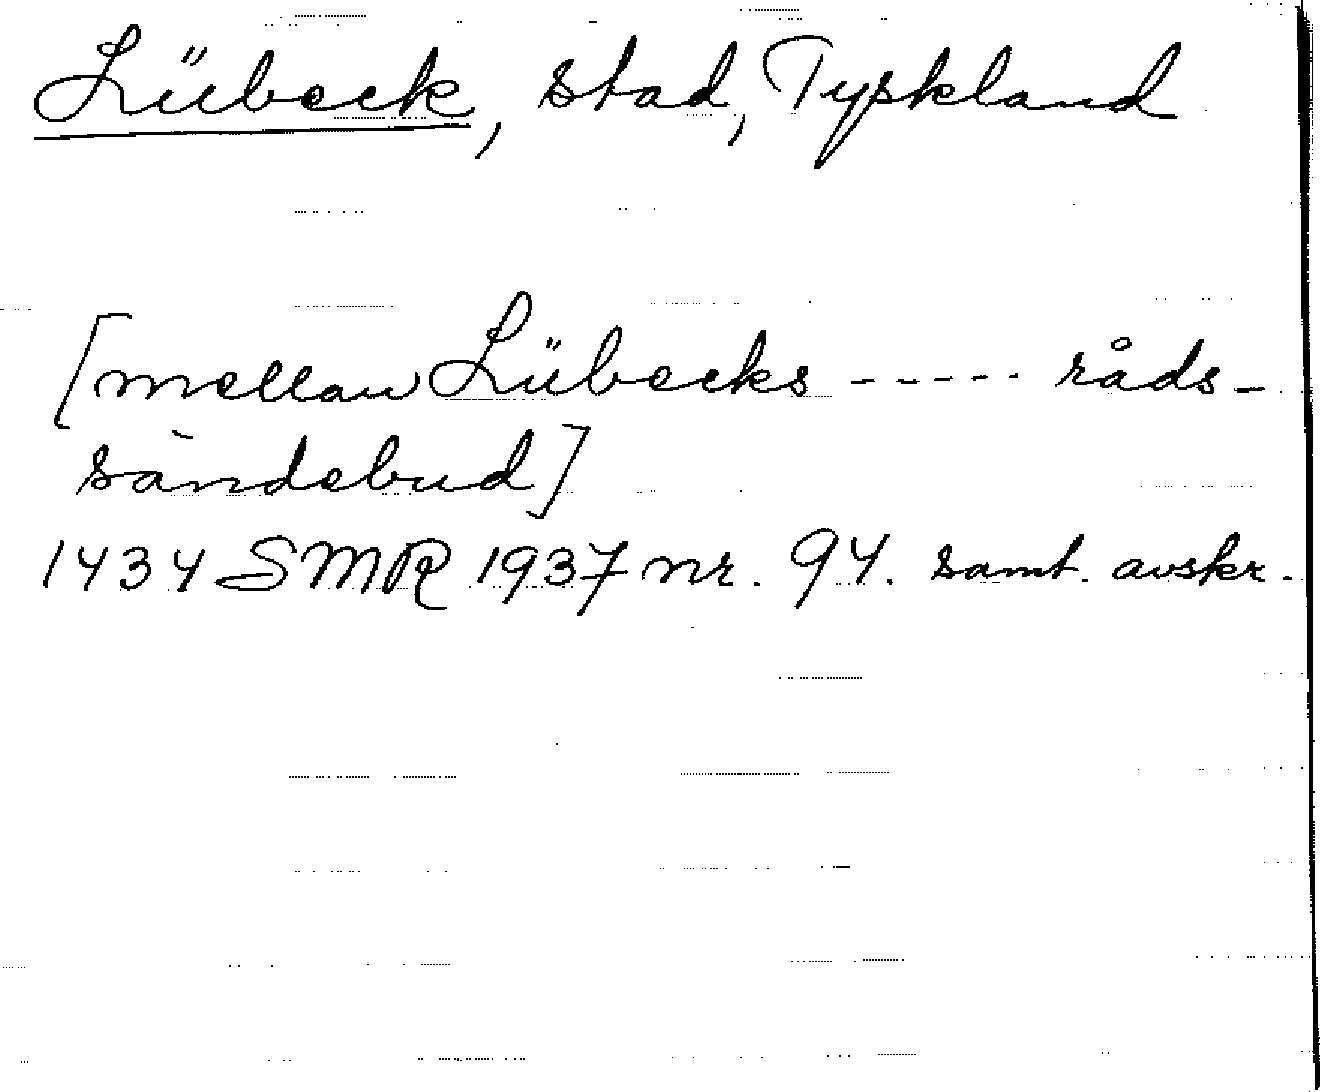 Lübeck, stad, Tyskland
[mellan Lübecks ----- råds-
sändebud]
1434 SMR 1937 nr. 94. samt. avskr.